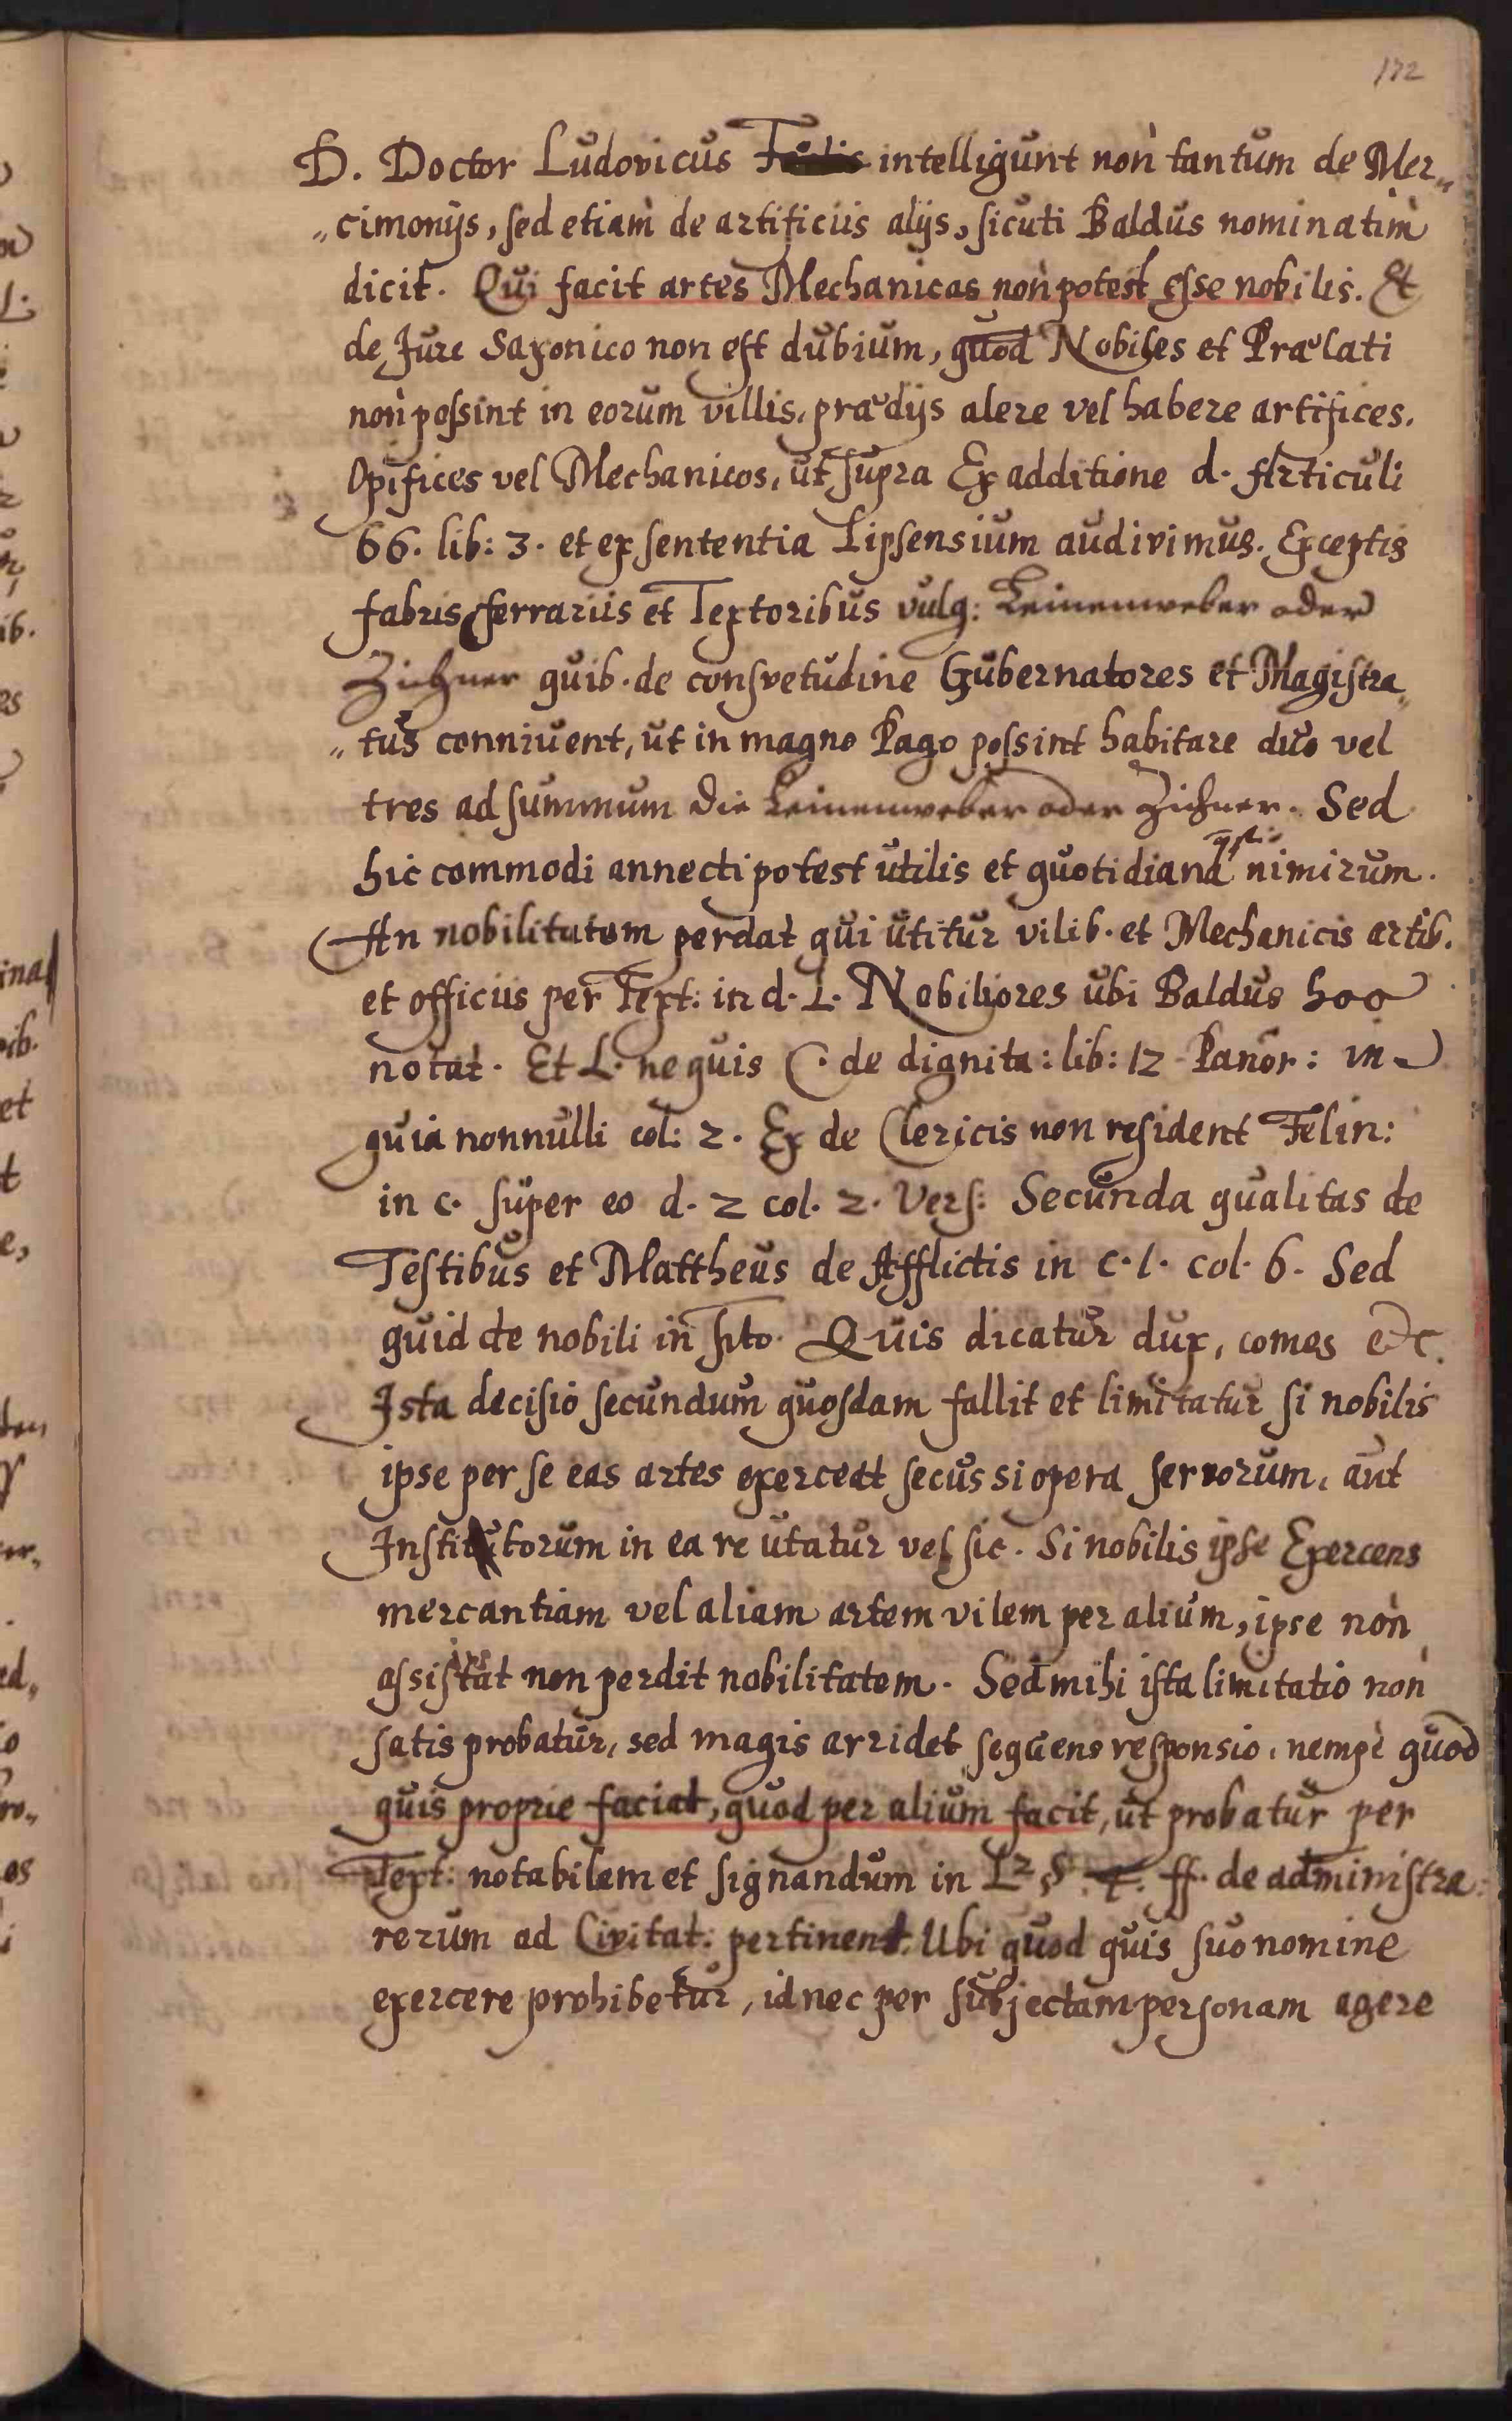 172
D. Doctor Ludovicus intelligunt non tantum de Mer„
„cimonijs, sed etiam de artificiis alijs, sicuti Baldus nominatim
dicit. Qui facit artes Mechanicas non potest esse nobilis. Et
de Jure Saxonico non est dubium, quod Nobiles et Prælati
non possint in eorum villis, prædijs alere vel habere artifices.
Opifices vel Mechanicos, ut supra Ex additione d. Articuli
66. lib: 3. et ex sententia Lipsensium audivimus. Exceptis
fabris ferrariis et Textoribus vulg: Leinenweber oder
Zichner quib. de consvetudine Gubernatores et Magistra„
„tus conniuent, ut in magno Pago possint habitare duo vel
tres ad summum die Leinenweber oder Zichner. Sed
hic commodi annecti potest utilis et quotidiana qst: nimirum.
An nobilitatem perdat qui utitur vilib. et Mechanicis artib.
et officiis per Text: in d. L. Nobiliores ubi Baldus hoc
notat. Et L. ne quis C. de dignita: lib: 12 Panor: in
quia nonnulli col: 2. Ex de Clericis non resident Felin:
in c. super eo d. 2 col. 2. Vers: Secunda qualitas de
Testibus et Mattheus de Afflictis in c. 1. col. 6. Sed
quid de nobili in sito. Quis dicatur dux, comes etc.
Ista decisio secundum quosdam fallit et limitatur si nobilis
ipse per se eas artes exerceat secus si opera servorum, aut
Institutorum in ea re utatur vel sic. Si nobilis ipse Exercens
mercantiam vel aliam artem vilem per alium, ipse non
assistat non perdit nobilitatem. Sed mihi ista limitatio non
satis probatur, sed magis arridet sequens responsio, nempè quod
quis proprie faciat, quod per alium facit, ut probatur per
Text: notabilem et signandum in L 2 § ff. de administra:
rerum ad Civitat: pertinent. Ubi quod quis suo nomine
exercere prohibetur, id nec per subjectam personam agere